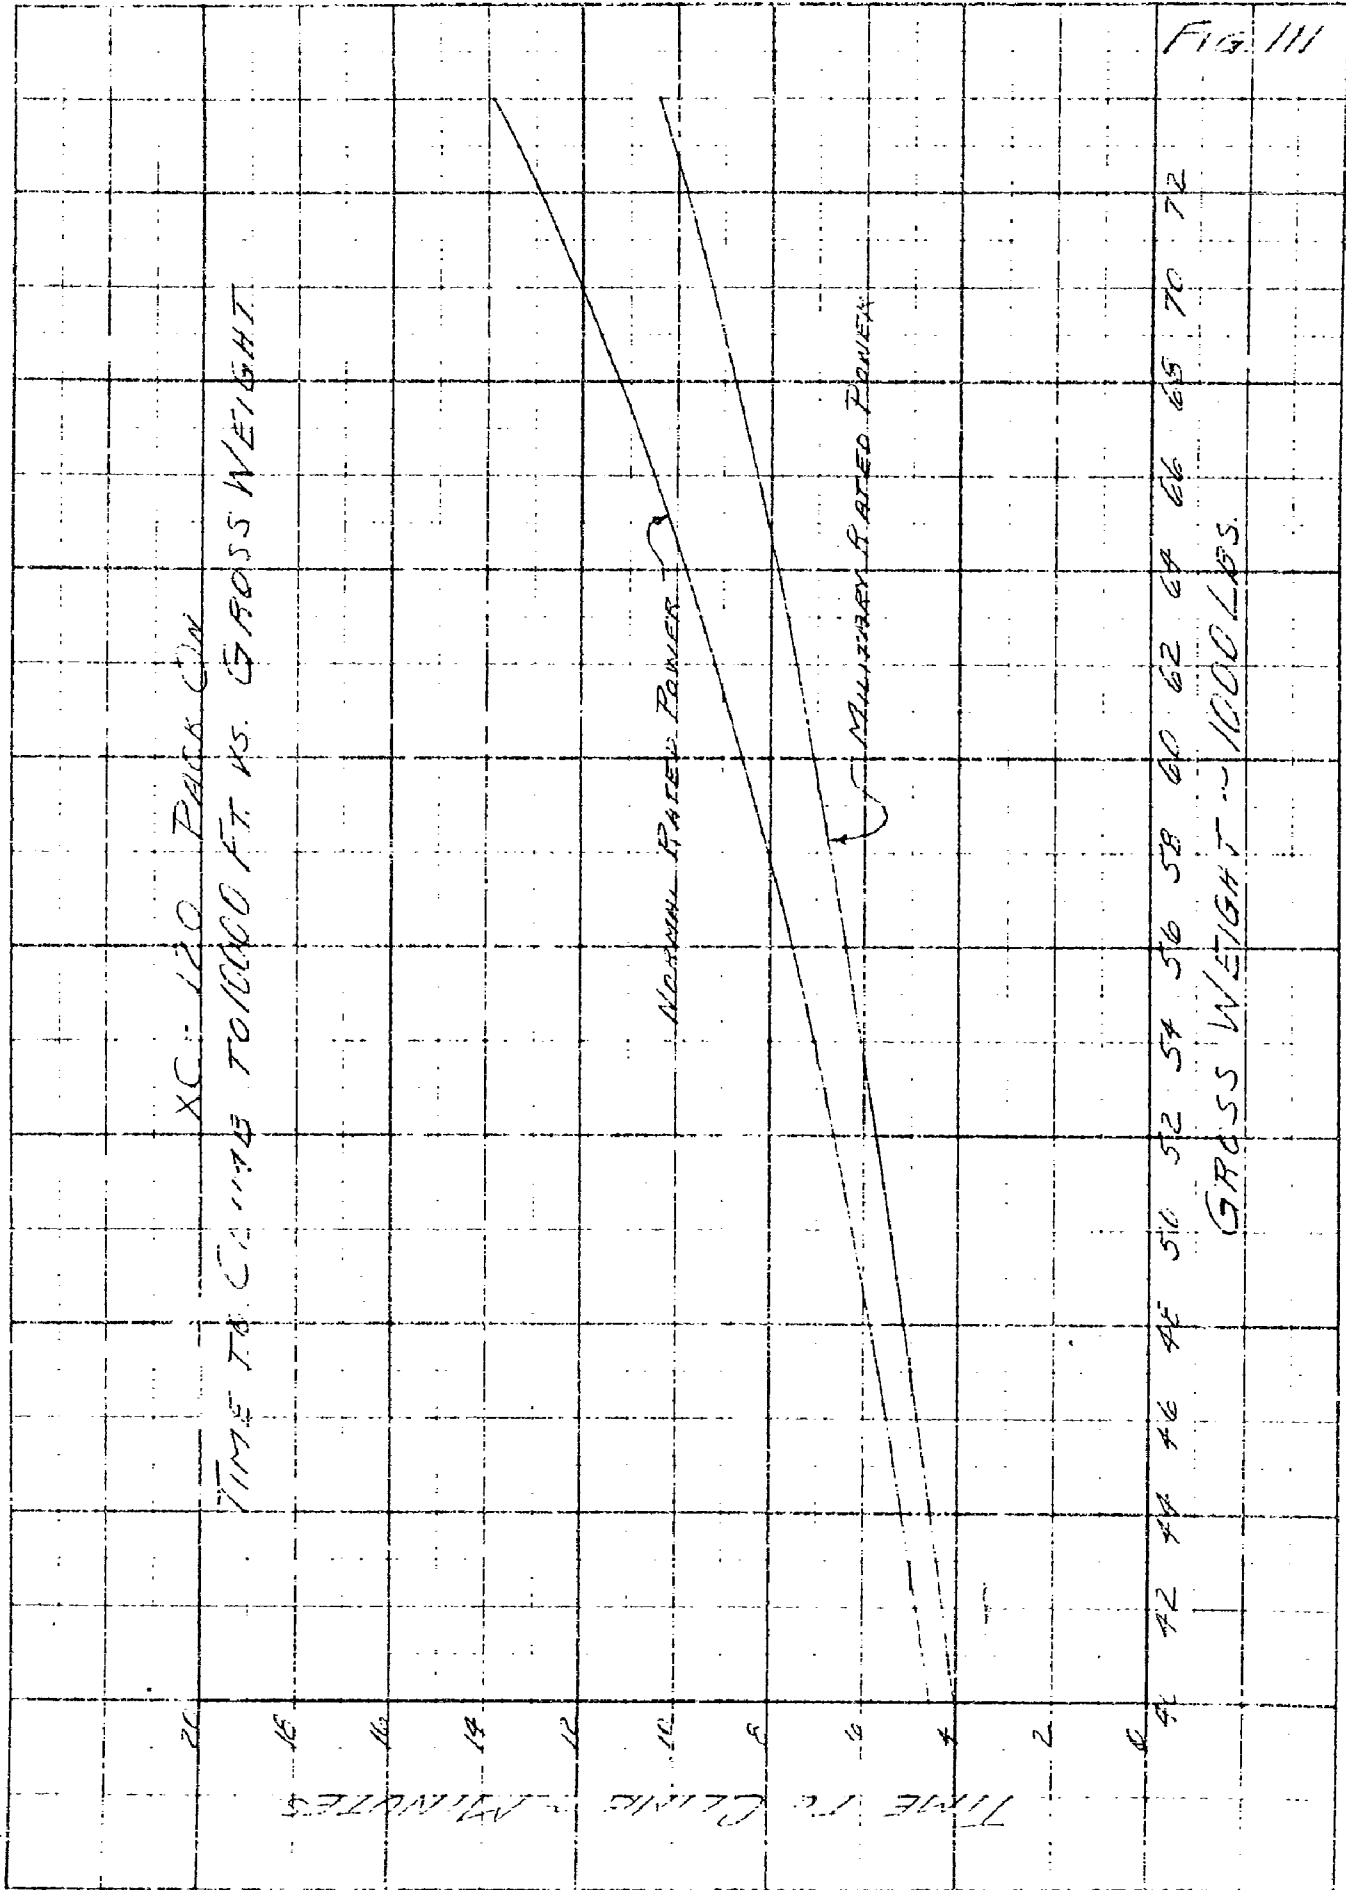 FIG. III
XC-120 PACK ON
TIME TO CLIMB TO 10000 FT. VS. GROSS WEIGHT
NORMAL RATED POWER
MILITARY RATED POWER
TIME TO CLIMB ~ MINUTES
20
18
16
14
12
10
8
6
4
2
0
40 42 44 46 48 50 52 54 56 58 60 62 64 66 68 70 72
GROSS WEIGHT ~ 1000 LBS.